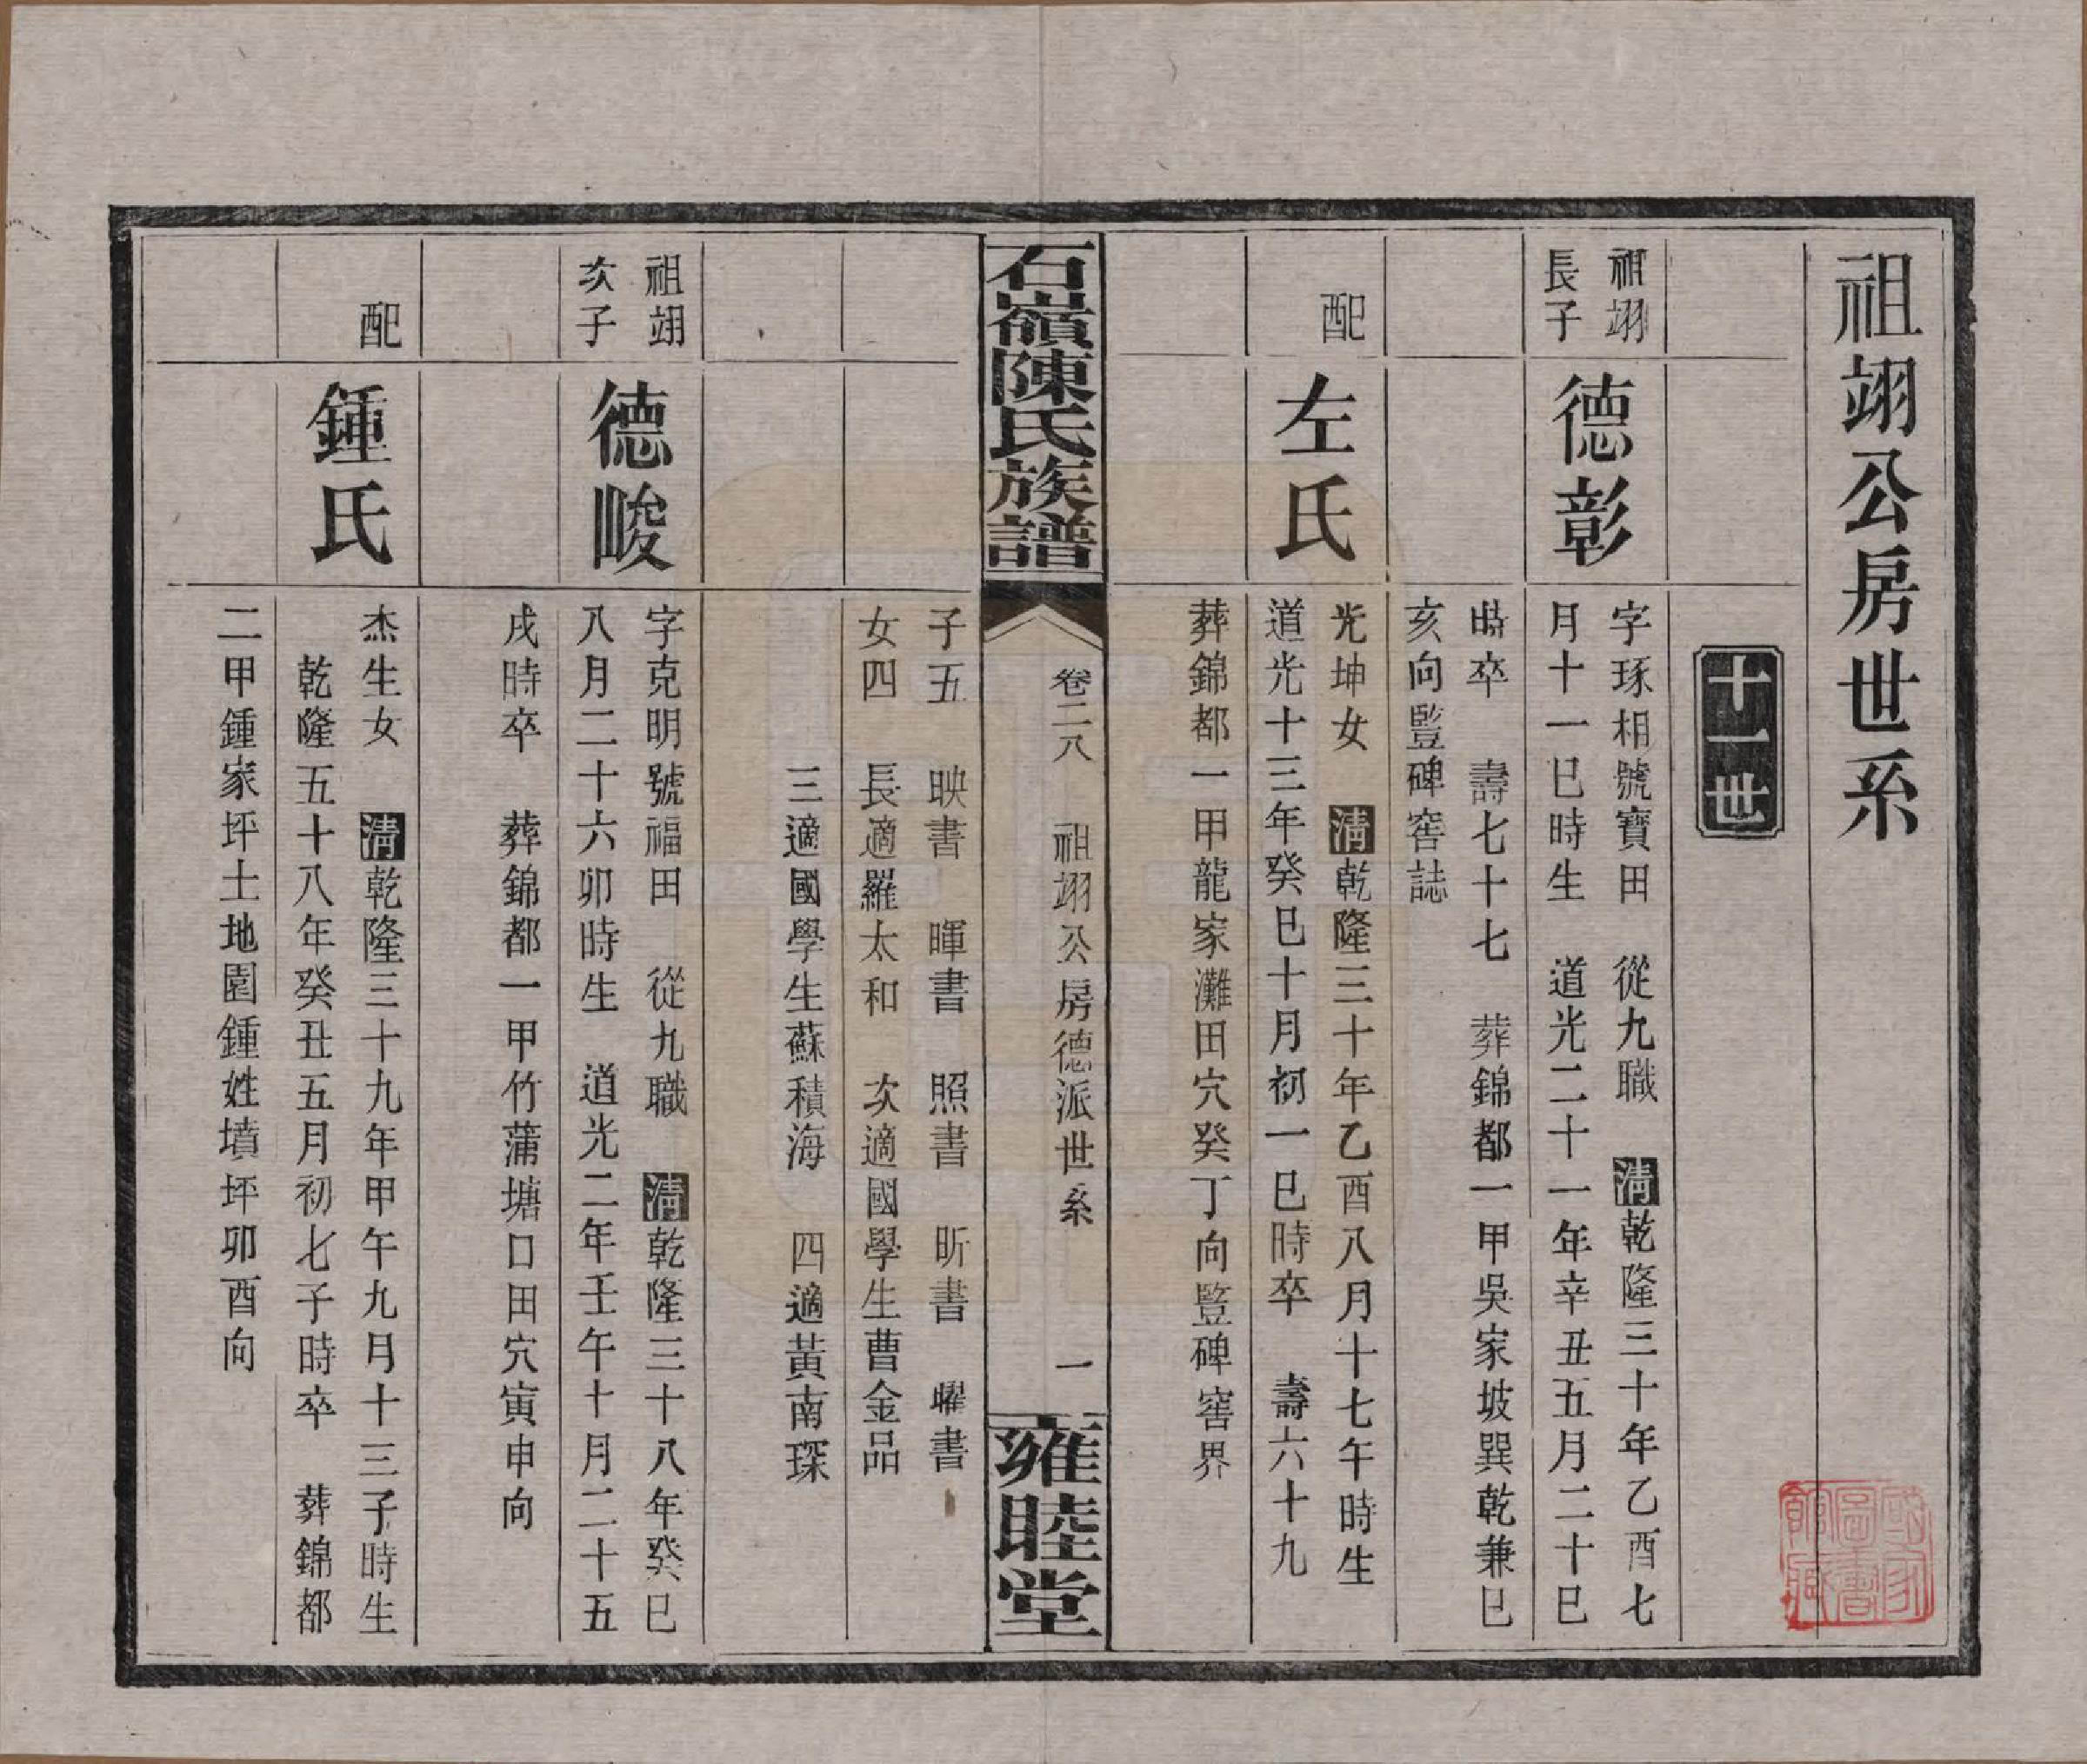 祖翊公房世系
十一世
祖翊
長子
德彰
字琢相號寶田　從九職　清乾隆三十年乙酉七
月十一巳時生　道光二十一年辛丑五月二十巳
時卒　壽七十七　葬錦都一甲吳家坡巽乾兼巳
亥向豎碑窖誌
配
左氏
光坤女　清乾隆三十年乙酉八月十七午時生
道光十三年癸巳十月初一巳時卒　壽六十九
葬錦都一甲龍家灘田穴癸丁向豎碑窖界
石嶺陳氏族譜
卷二八　祖翊公房德派世系　一
雍睦堂
子五　映書　暉書　照書　昕書　曜書
女四　長適羅太和　次適國學生曹金品
三適國學生蘇積海　四適黃南琛
祖翊
次子
德畯
字克明號福田　從九職　清乾隆三十八年癸巳
八月二十六卯時生　道光二年壬午十月二十五
戌時卒　葬錦都一甲竹蒲塘口田穴寅申向
配
鍾氏
杰生女　清乾隆三十九年甲午九月十三子時生
乾隆五十八年癸丑五月初七子時卒　葬錦都
二甲鍾家坪土地園鍾姓墳坪卯酉向
國家
圖書
館藏